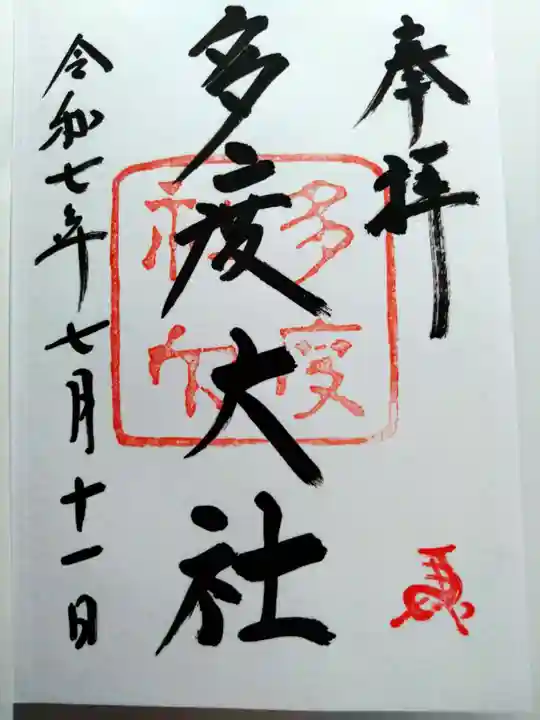 奉拝
多度大社
多度
令和七年七月十一日